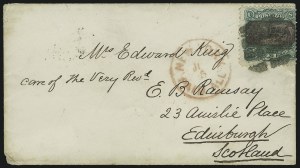 Mrs Edward King
care of the Very Revd.
E B Ramsay
23 Ainslie Place
Edinburgh
Scotland